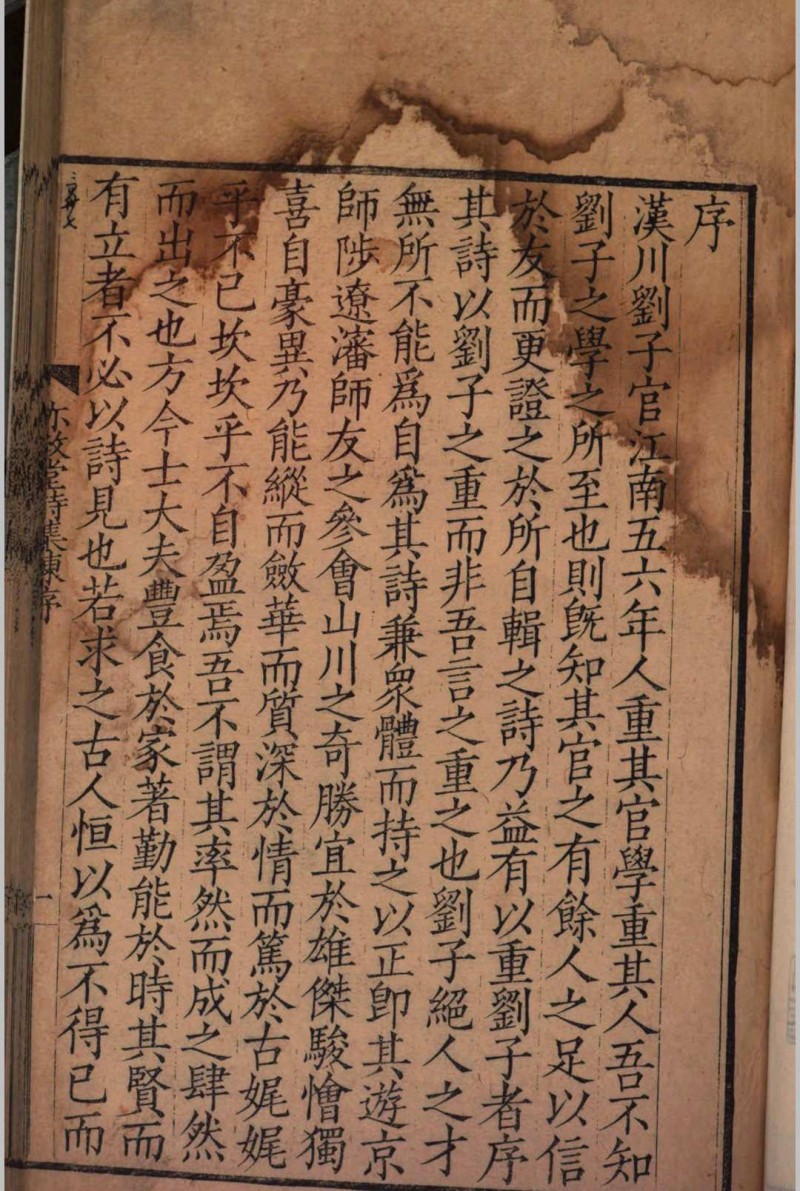 序
漢川劉子官江南五六年人重其官學重其人吾不知
劉子之學之所至也則旣知其官之有餘人之足以信
於友而更證之於所自輯之詩乃益有以重劉子者序
其詩以劉子之重而非吾言之重之也劉子絕人之才
無所不能爲自爲其詩兼衆體而持之以正卽其遊京
師陟遼瀋師友之參會山川之奇勝宜於雄傑駿憎獨
喜自豪異乃能縱而斂華而質深於情而篤於古娓娓
乎不已坎坎乎不自盈焉吾不謂其率然而成之肆然
而出之也方今士大夫豐食於家著勤能於時其賢而
有立者不必以詩見也若求之古人恒以爲不得已而
堂詩集陳序
一